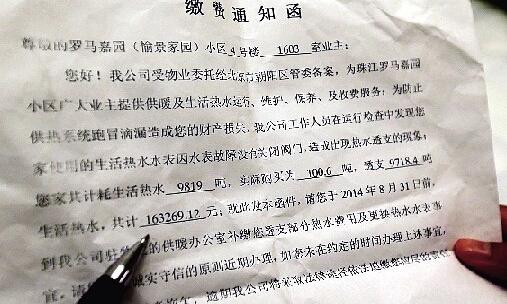 缴费通知函
尊敬的罗马嘉园（愉景家园）小区 号楼 1603 室业主：
您好！我公司受物业委托经北京朝阳区管委备案，为珠江罗马嘉园
小区广大业主提供供暖及生活热水运行、维护、保养、及收费服务；为防止
供热系统跑冒滴漏造成您的财产损失，我公司工作人员在运行检查中发现您
家使用的生活热水水表因水表故障没有关闭阀门，造成出现热水透支的现象；
您家共计耗生活热水 9819 吨，实际购买 100.6 吨，透支 9718.4 吨
生活热水，共计 163269.12 元；现就此发函件，请您于2014年8月31日前，
到我公司 的供暖办公室补缴您透支部分热水费用及更换热水水表事
宜，请 诚实守信的原则近期办理，如您未在约定的时间办理上述事宜，
逾期我公司将采取法律途径依法追缴